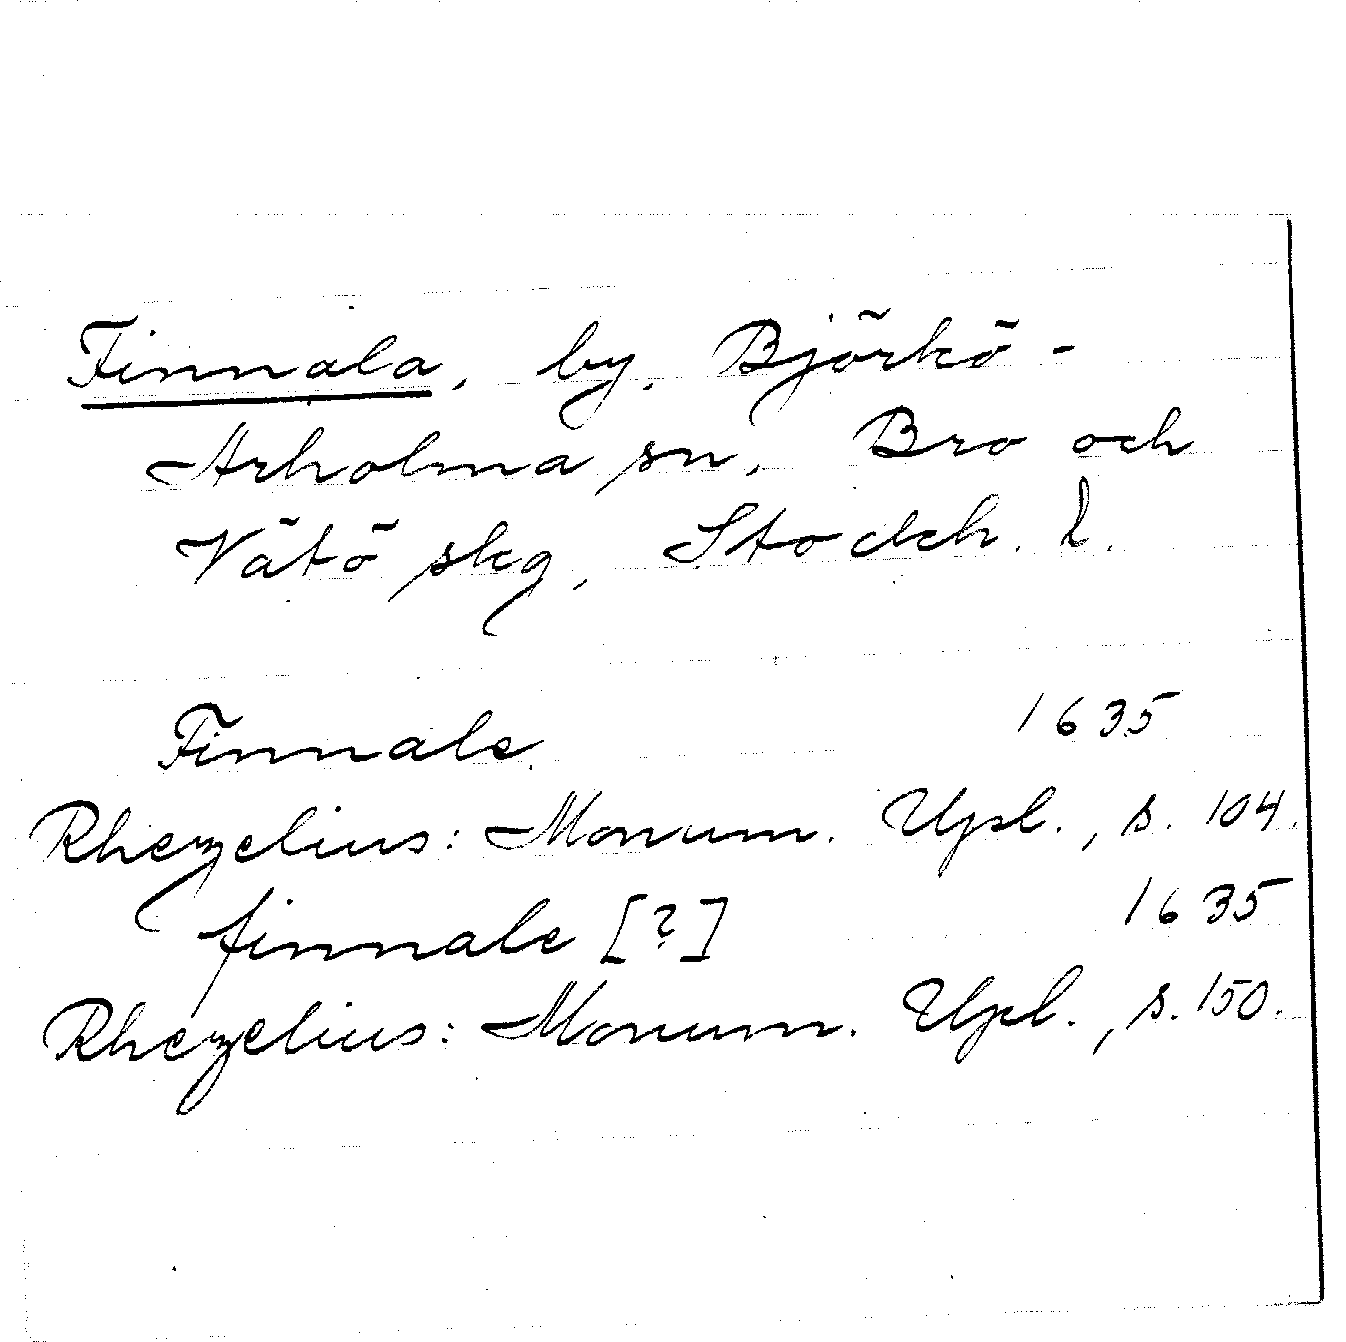 Finnala, by, Björkö-
Arholma sn, Bro och
Vätö skg, Stockh. l.
Finnale 1635
Rhezelius: Monum. Upl., s. 104.
finnale [?] 1635
Rhezelius: Monum. Upl., s. 150.